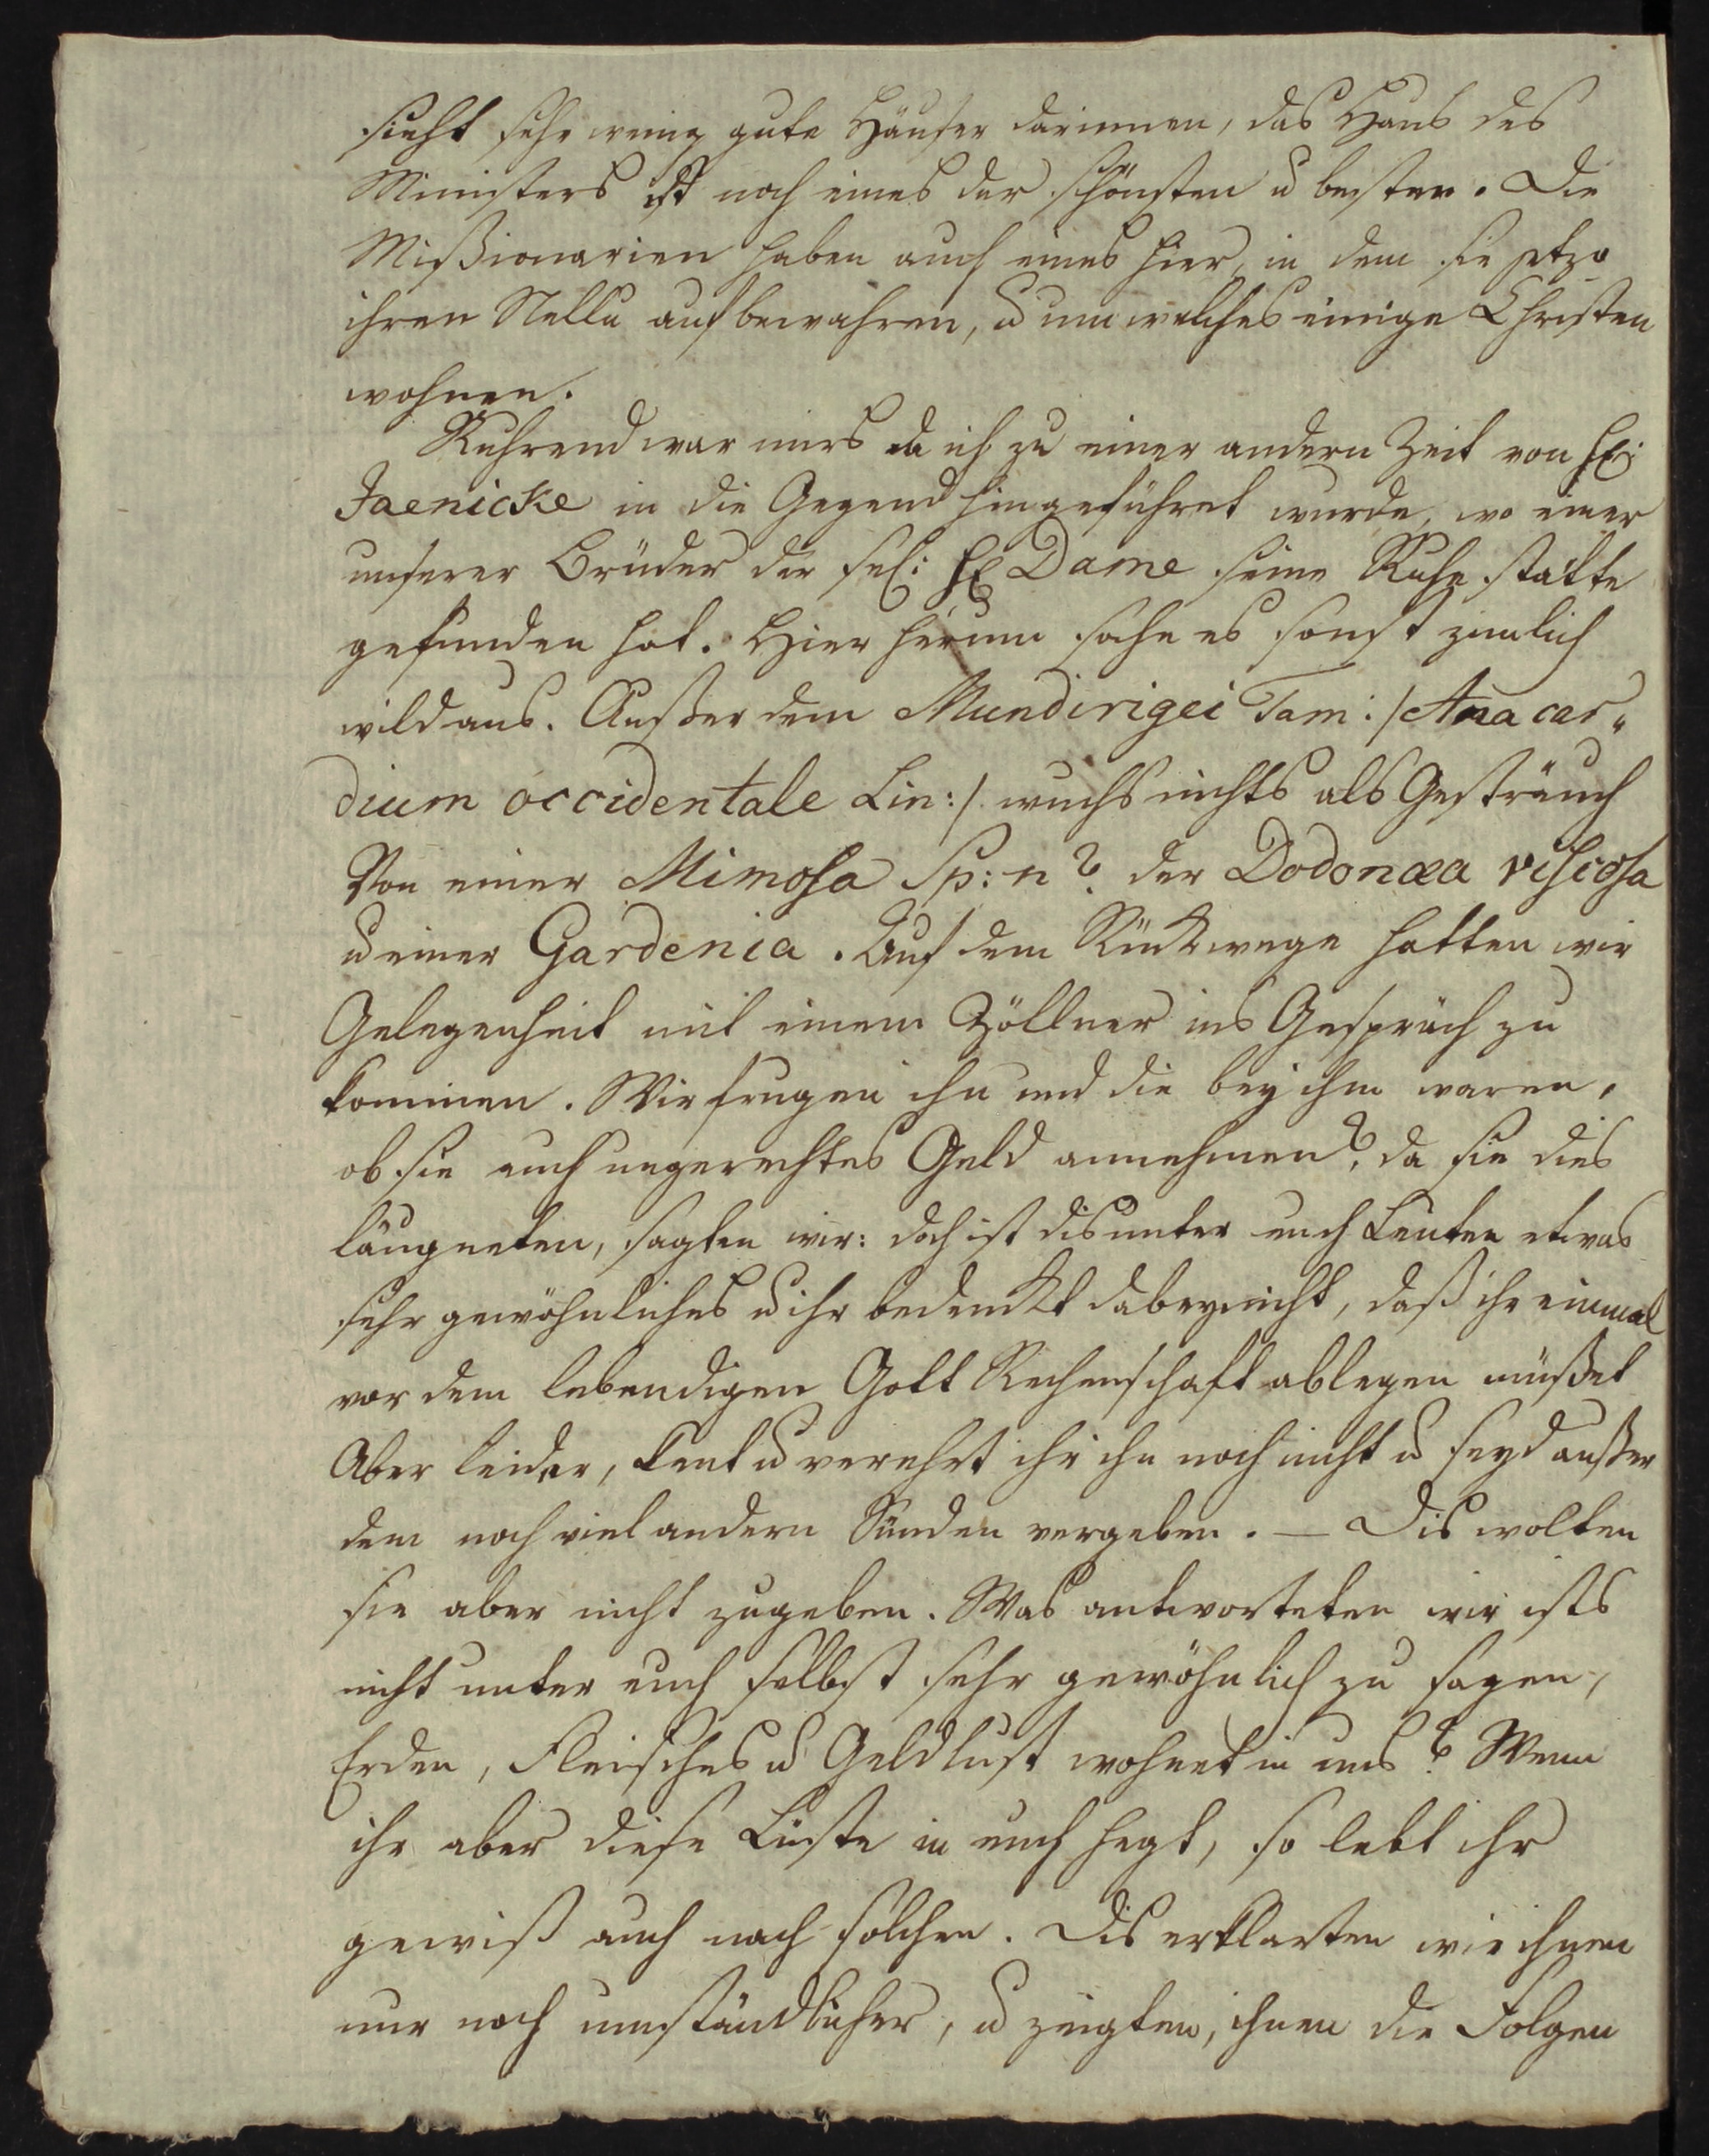 sieht sehr wenig gute Häuser darinnen, das Haus des
Ministers ist noch eines der schönsten u besten. Die
Mißionarien haben auch eines hier, in dem sie jetzo
ihren Nellu aufbewahren, u um welches einige Christen
wohnen.
Ruhrend war mirs da ich zu einer andern Zeit von H:
Jaenicke in die Gegend hingeführet wurde, wo einer
unserer Brüder der sel: H Dame seine Ruhe stätte
gefunden hat. Hier herum sahe es sonst zimlich
wild aus. Außer dem Mundirigei Tam: /Anacar„
dium occidentale Lin:/ wuchs nichts als Gesträuch
Von einer Mimosa Sp: n? der Dodonæa viscosa
u einer Gardenia. Auf dem Rückwege hatten wir
Gelegenheit mit einem Zöllner ins Gespräch zu
kommen. Wir frugen ihn und die bey ihm waren,
ob sie auch ungerechtes Geld annehmen? da sie dies
läugneten, sagten wir: doch ist dis unter euch Leuten etwas
sehr gewöhnliches u ihr bedenckt dabey nicht, daß ihr einmal
vor dem lebendigen Gott Rechenschaft ablegen müßet
Aber leider, kent u verehrt ihr ihn noch nicht u seyd außer
dem noch viel andern Sünden ergeben. — Dis wolten
sie aber nicht zugeben. Was antworteten wir ists
nicht unter euch selbst sehr gewöhnlich zu sagen,
Erden, Fleisches u Geldlust wohnet in uns? Wenn
ihr aber diese Lüste in euch hegt, so lebt ihr
gewiß auch nach solchen. Dis erklarten wir ihnen
nur noch umständlicher, u zeigten, ihnen die Folgen